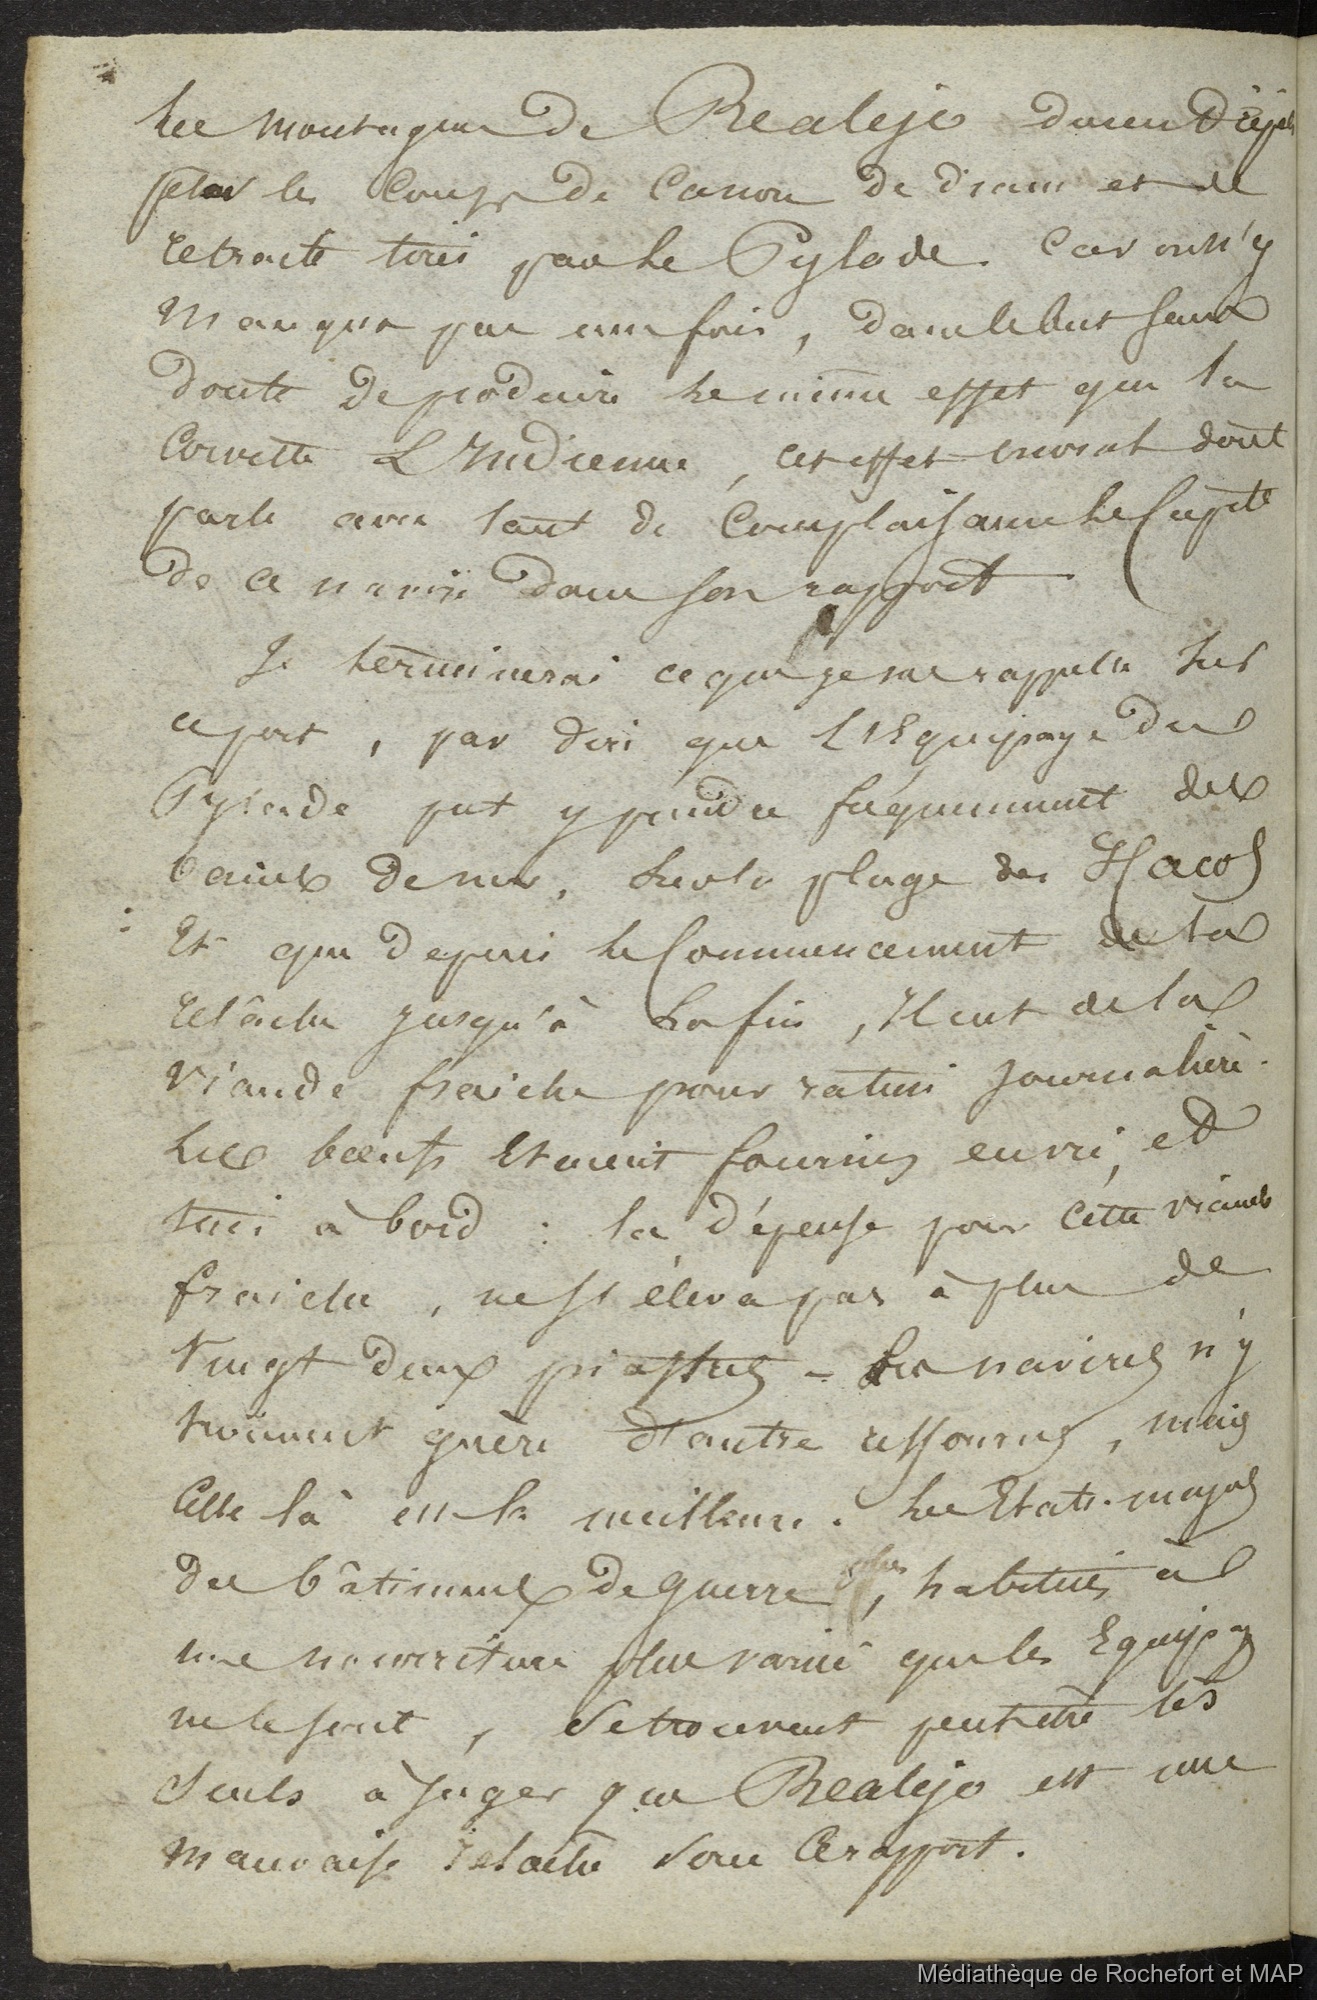 Les montagnes de Realejo
par les Coups de Canon de diane et de
retraite tirés par le Pylade. Car on n'y
manqua pas une fois, dans le but sans
doute de produire le même effet que la
Corvette L'Indienne, cet effet moral dont
parle avec tant de Complaisance le Capite
de ce navire dans son rapport
Je terminerai ce que je me rappelle sur
ce port, par dire que l'Equipage du
Pylade put y prendre fréquemment des
bains de mer, sur la plage des
Et que depuis le Commencement de la
relâche jusqu'à la fin, Il eut de la
viande fraiche pour ration journalière.
Les bœufs Etaient fournis en vie, et
tués à bord : la dépense pour Cette viande
fraiche, ne s'éleva pas à plus de
vingt deux piastres - Les navires n'y
trouvent guère d'autre ressources, mais
Celle là est la meilleure. Les Etats-majors
des bâtiments de guerre, habitués à
une nourriture plus variée que les Equipages
ne le sont, se trouvent peut être les
seuls à juger que Realejo est une
mauvaise relâche sous Ce rapport.
Médiathèque de Rochefort et MAP